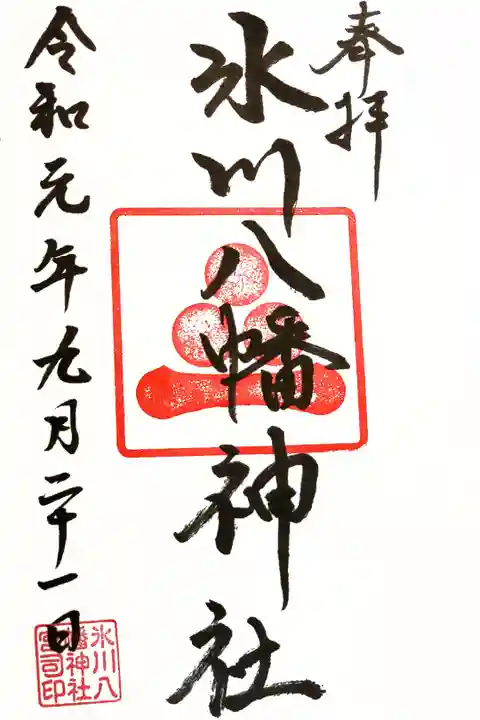 奉拝
氷川八幡神社
令和元年九月二十一日
氷川八
幡神社
宮司印